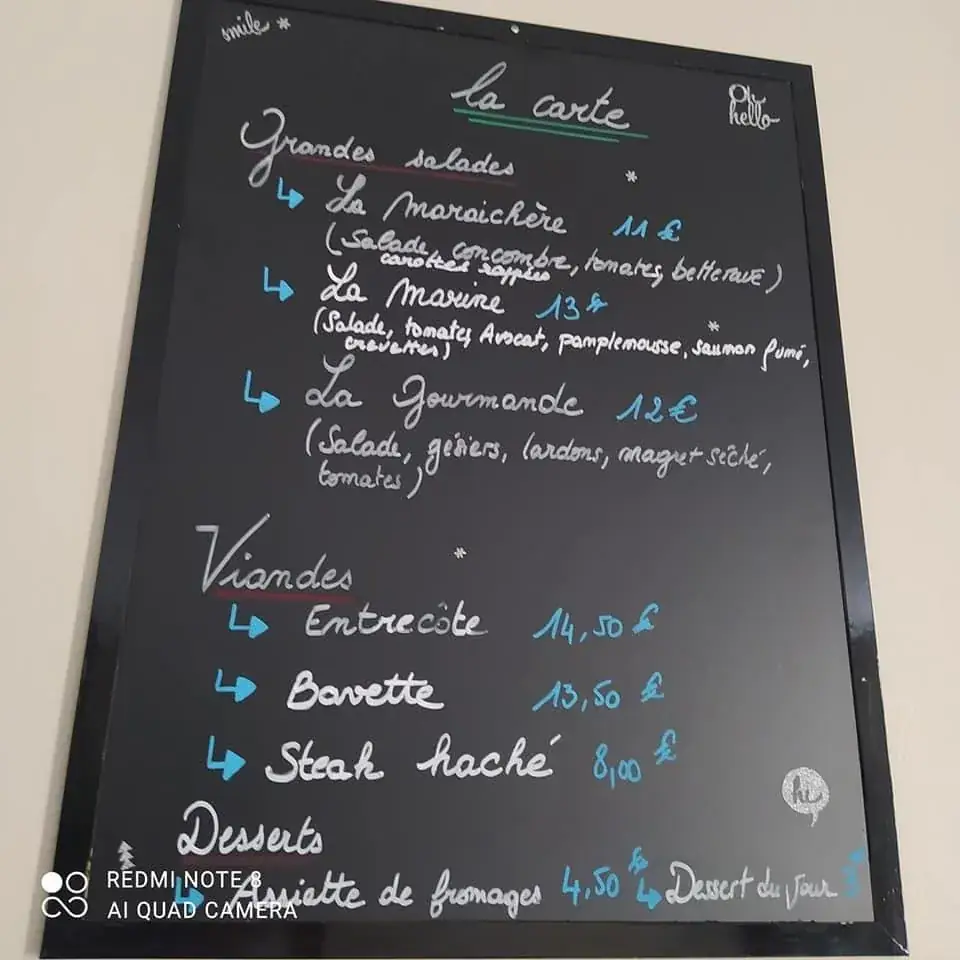 smile *
la carte
Oh hello
Grandes salades
La Maraichère 11 €
(Salade, concombre, tomates, betterave)
carottes rappées
La Marine 13 €
(Salade, tomates, Avocat, pamplemousse, saumon fumé,
crevettes)
La Gourmande 12 €
(Salade, gésiers, lardons, magret sêché,
tomates)
Viandes
Entrecôte 14,50 €
Bavette 13,50 €
Steak haché 8,00 €
hi
Desserts
Assiette de fromages 4,50 € Dessert du jour 3 €
REDMI NOTE 8
AI QUAD CAMERA